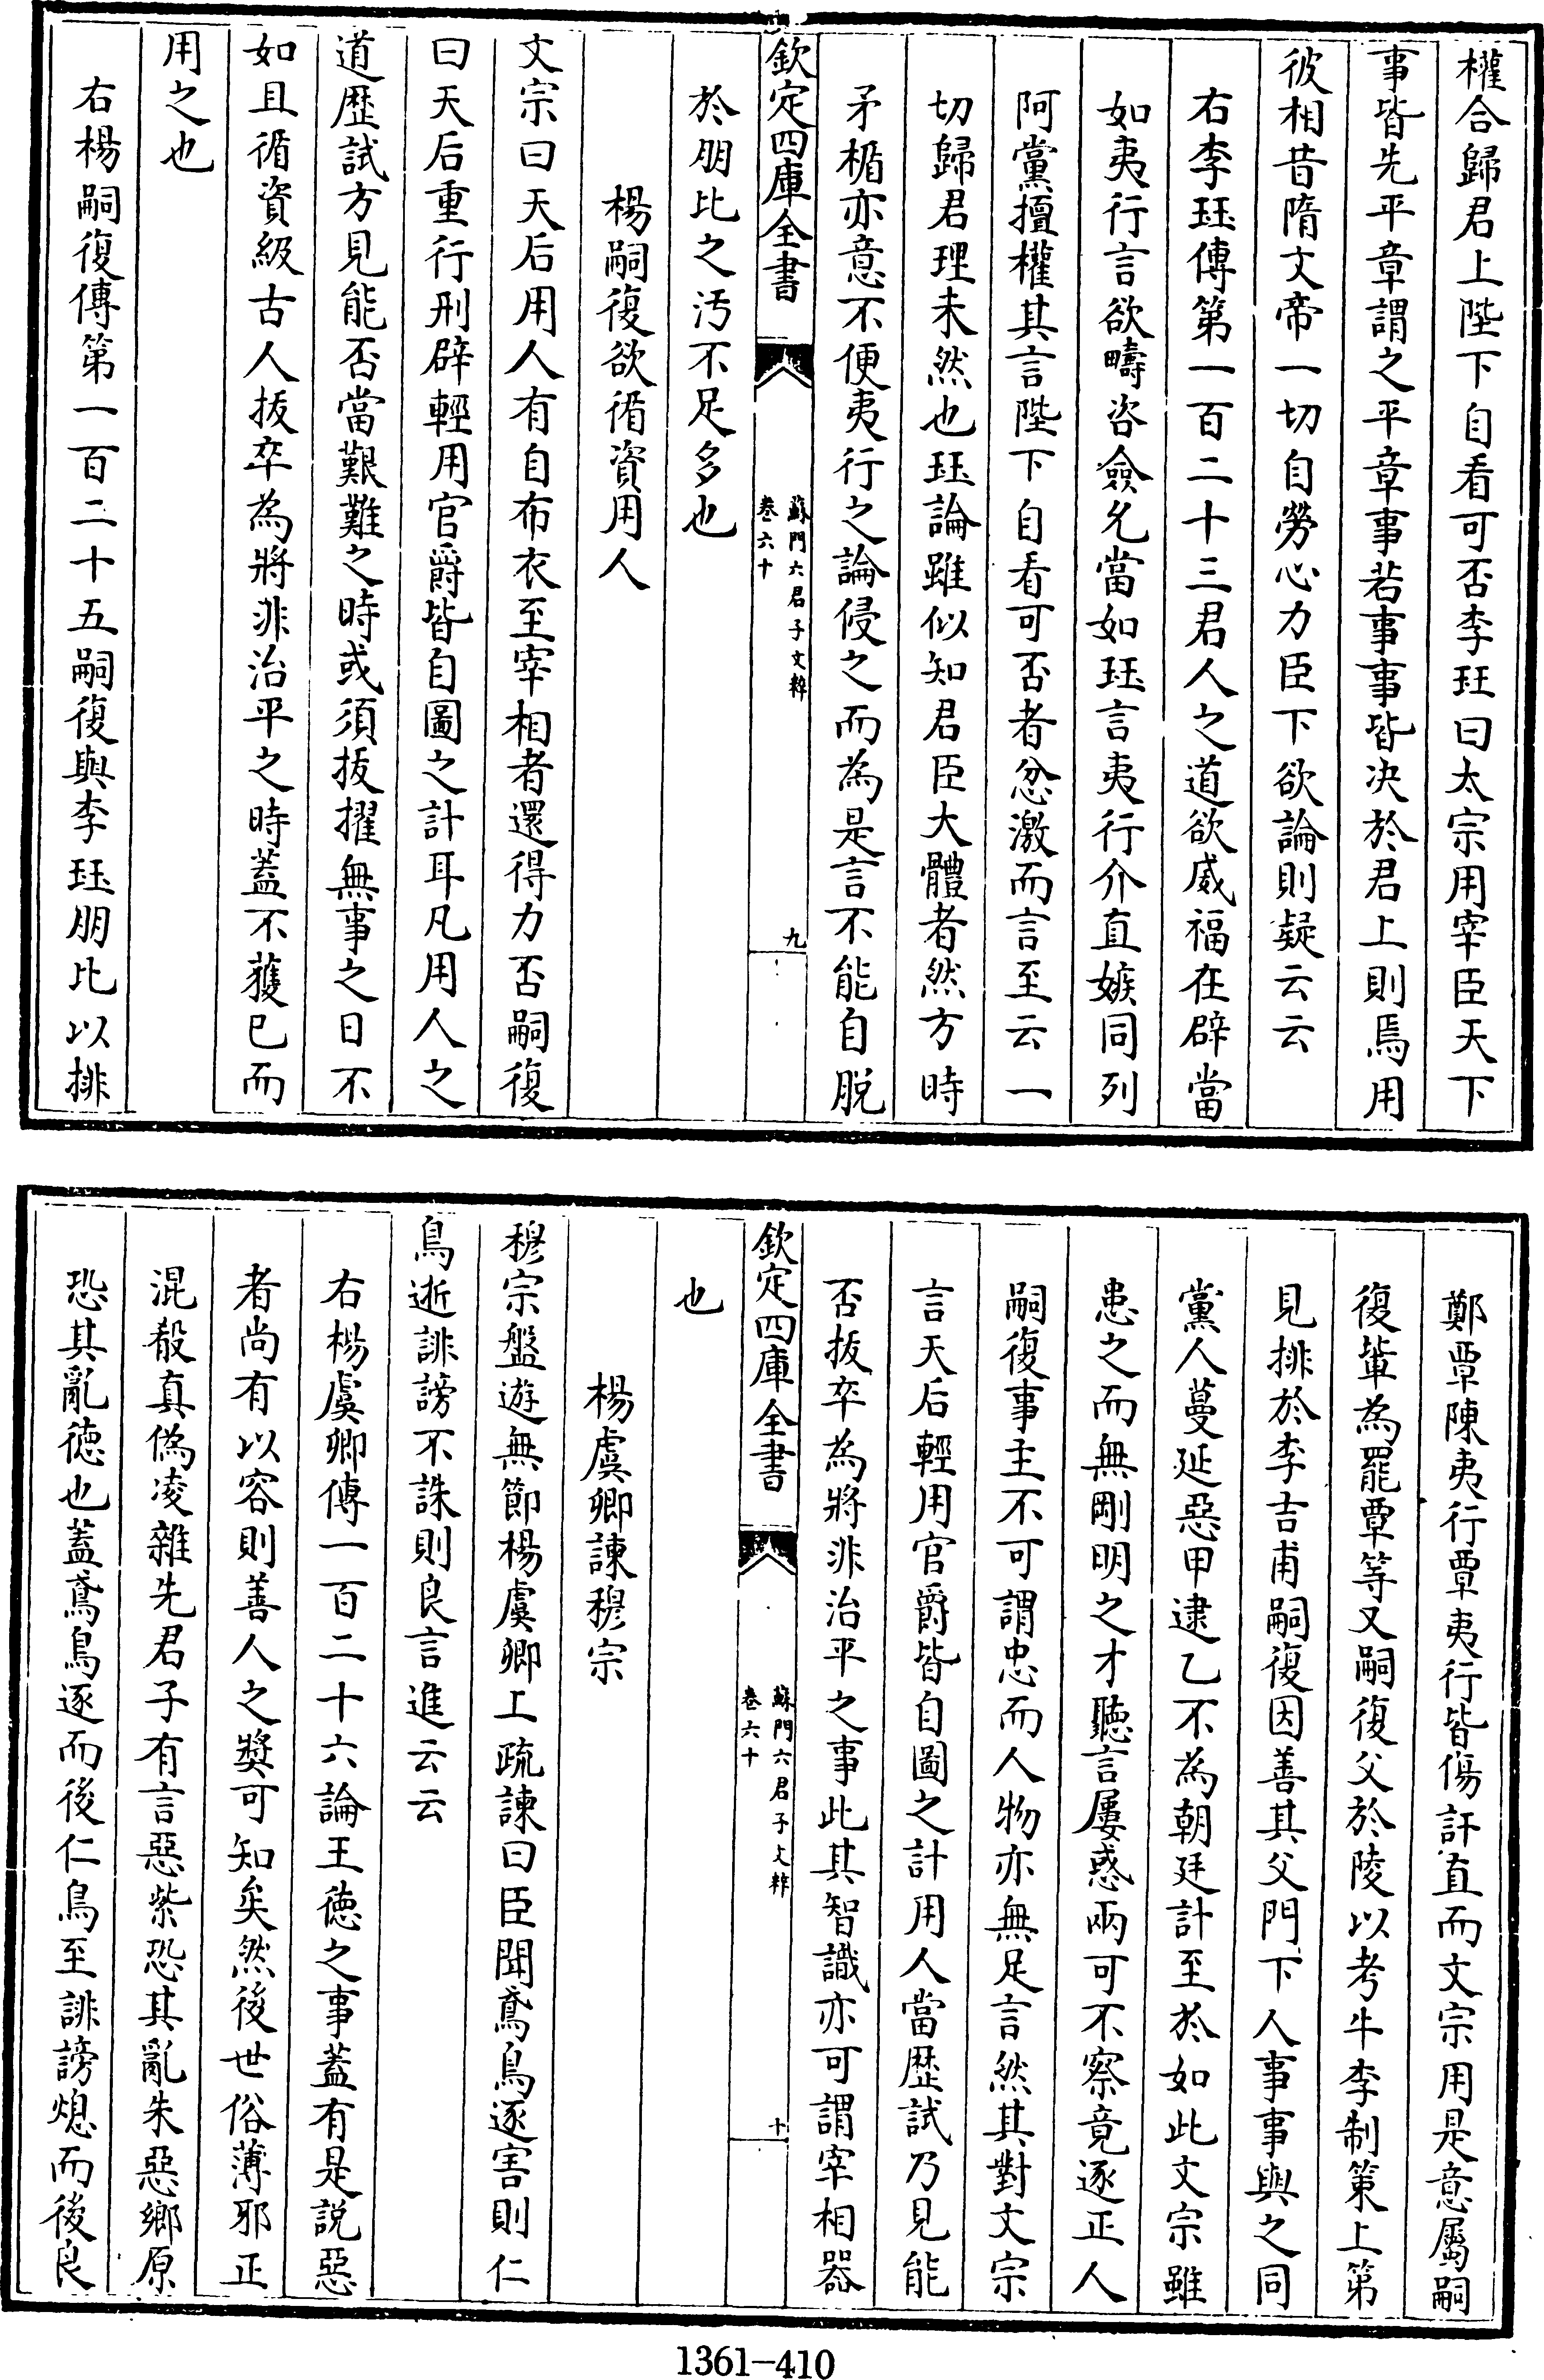 權合歸君上陛下自看可否李珏曰太宗用宰臣天下
事皆先平章謂之平章事若事事皆决於君上則焉用
彼相昔隋文帝一切自勞心力臣下欲論則疑云云
右李珏傳第一百二十三君人之道欲威福在辟當
如夷行言欲疇咨僉允當如珏言夷行介直嫉同列
阿黨擅權其言陛下自看可否者忿激而言至云一
切歸君理未然也珏論雖似知君臣大體者然方時
矛楯亦意不便夷行之論侵之而為是言不能自脱
欽定四庫全書
蘇門六君子文粹
卷六十
九
於朋比之汚不足多也
楊嗣復欲循資用人
文宗曰天后用人有自布衣至宰相者還得力否嗣復
曰天后重行刑辟輕用官爵皆自圖之計耳凡用人之
道歴試方見能否當艱難之時或須拔擢無事之日不
如且循資級古人拔卒為將非治平之時蓋不獲已而
用之也
右楊嗣復傳第一百二十五嗣復與李珏朋比以排
鄭覃陳夷行覃夷行皆傷訐直而文宗用是意屬嗣
復輩為罷覃等又嗣復父於陵以考牛李制策上第
見排於李吉甫嗣復因善其父門下人事事與之同
黨人蔓延惡甲逮乙不為朝廷計至於如此文宗雖
患之而無剛明之才聽言屢惑兩可不察竟逐正人
嗣復事主不可謂忠而人物亦無足言然其對文宗
言天后輕用官爵皆自圖之計用人當歴試乃見能
否拔卒為將非治平之事此其智識亦可謂宰相器
欽定四庫全書
蘇門六君子文粹
卷六十
十
也
楊虞卿諫穆宗
穆宗盤遊無節楊虞卿上疏諫曰臣聞鳶鳥逐害則仁
鳥逝誹謗不誅則良言進云云
右楊虞卿傳一百二十六論王徳之事蓋有是說惡
者尚有以容則善人之奬可知矣然後世俗薄邪正
混殽真偽凌雜先君子有言惡紫恐其亂朱惡鄉原
恐其亂徳也蓋鳶鳥逐而後仁鳥至誹謗熄而後良
1361-410